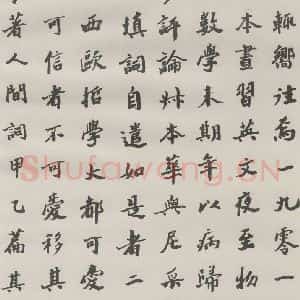 輒嚮往焉一九零一
本晝習英文夜至物
數學未期年以病歸
評論叔本華與尼采
填詞自遣如是者二
西歐哲學大都可愛
可信者不可愛移其
著人間詞甲乙篇其
Shufawang.CN